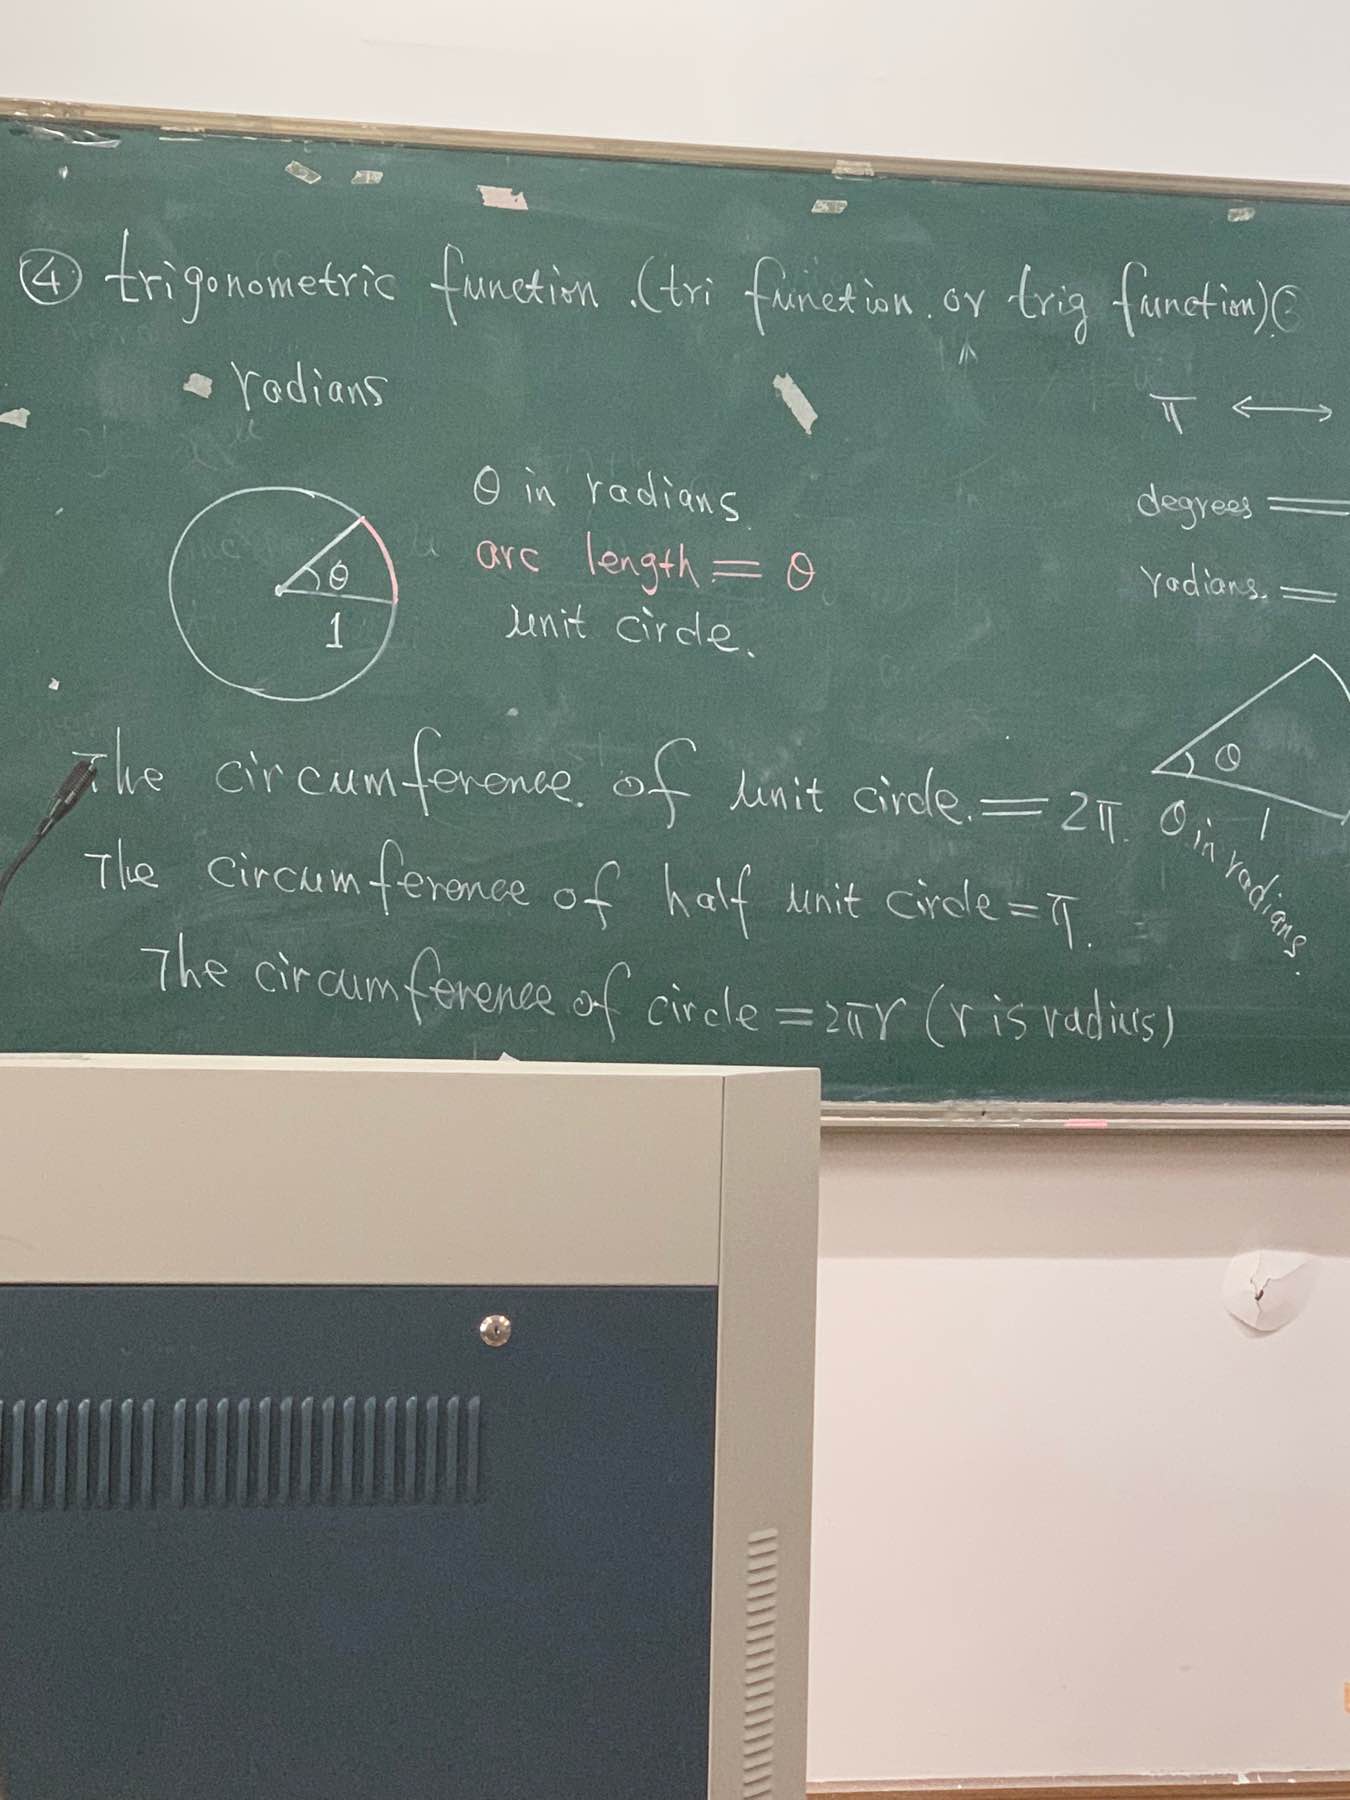 ④ trigonometric function. (tri function. or trig function)
radians
θ
1
θ in radians.
arc length = θ
unit circle.
The circumference of unit circle. = 2π.
The circumference of half unit circle = π.
The circumference of circle = 2πr (r is radius)
π ↔
degrees =
radians. =
θ
1
θ in radians.